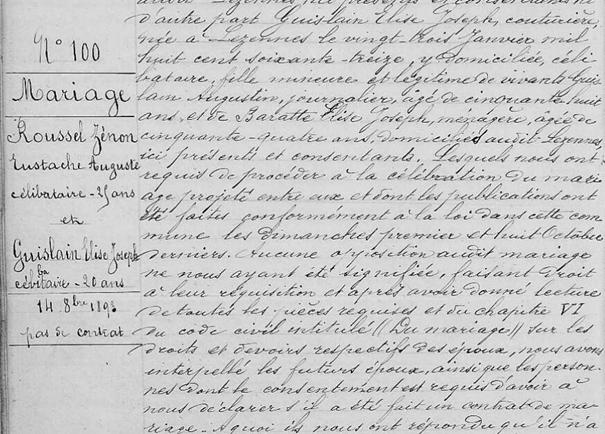 N° 100
Mariage
Roussel Zénon
Eustache Auguste
célibataire - 25 ans
et
Guislain Elise Joseph
célibataire - 20 ans
14 8bre 1893
pas de contrat
d'autre part Guislain Elise Joseph, couturière,
née à Lezennes le vingt-trois Janvier mil
huit cent soixante-treize, y domiciliée, céli-
bataire, fille mineure et légitime de vivants Guis-
lain Augustin, journalier, âgé de cinquante huit
ans, et de Baratte Elise Joseph, ménagère, âgée de
cinquante-quatre ans, domiciliés audit Lezennes,
ici présents et consentants. Lesquels nous ont
requis de procéder à la célébration du mari-
age projeté entre eux et dont les publications ont
été faites conformément à la loi dans cette com
mune les dimanches premier et huit Octobre
derniers. Aucune opposition audit mariage
ne nous ayant été signifiée, faisant droit
à leur réquisition et après avoir donné lecture
de toutes les pièces requises et du chapitre VI
du code civil intitulé (( Du mariage )) sur les
droits et devoirs respectifs des époux, nous avons
interpellé les futurs époux, ainsi que les person-
nes dont le consentement est requis d'avoir à
nous déclarer s'il a été fait un contrat de ma-
riage. A quoi ils nous ont répondu qu'il n'a